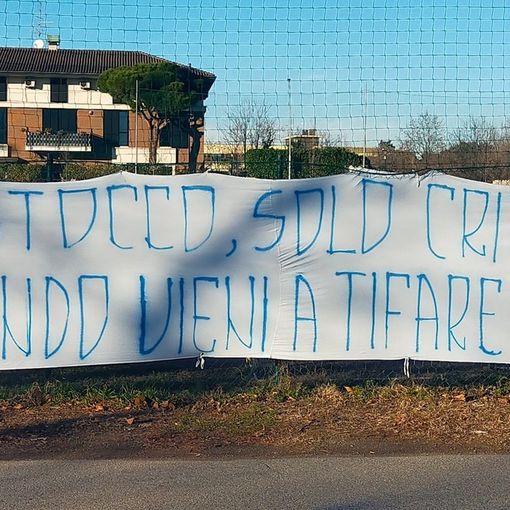 TOCCO, SOLO CRI
NDO VIENI A TIFARE